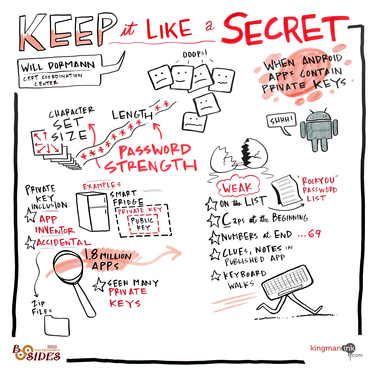 KEEP it LIKE a SECRET
WILL DORMANN
CERT COORDINATION
CENTER
OOOPS!
WHEN ANDROID
APPS CONTAIN
PRIVATE KEYS
SHHH!
CHARACTER
SET
SIZE
LENGTH
PASSWORD
STRENGTH
PRIVATE
KEY
INCLUSION
APP
INVENTOR
ACCIDENTAL
EXAMPLES
SMART
FRIDGE
PRIVATE KEY
PUBLIC
KEY
1.8 MILLION
APPS
SEEN MANY
PRIVATE
KEYS
ZIP
FILES
WEAK
"ROCKYOU"
PASSWORD
LIST
ON the LIST
CAPS at the BEGINNING
NUMBERS at END ... 69
CLUES, NOTES in
PUBLISHED APP
KEYBOARD
WALKS
BSIDES
kingmanink.com